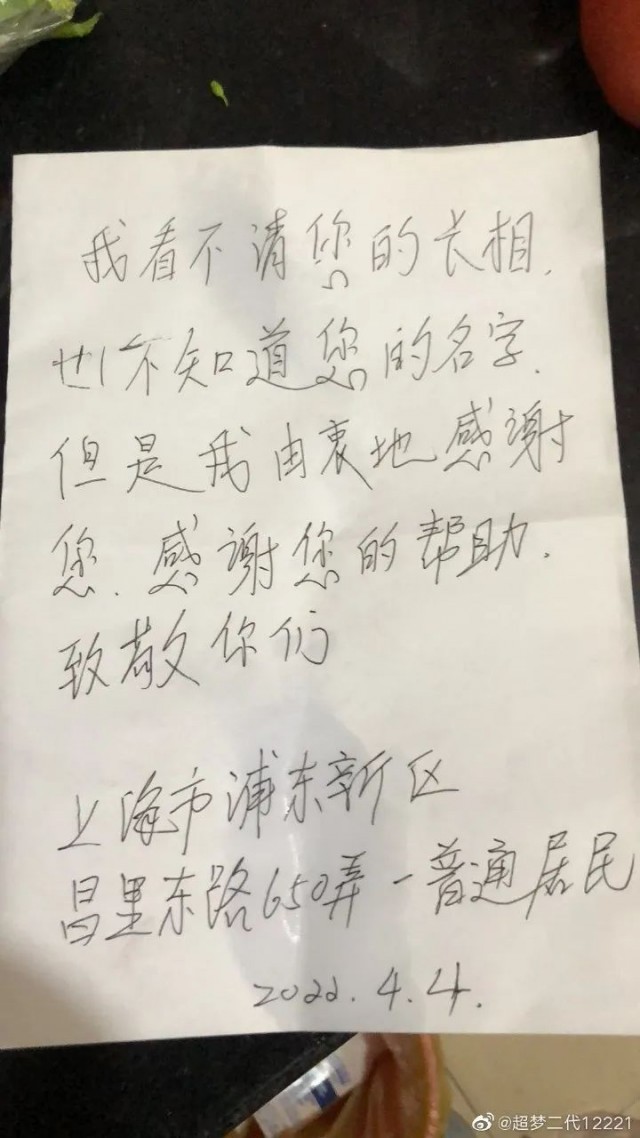 我看不清您的长相.
也不知道您的名字.
但是我由衷地感谢
您.感谢您的帮助.
致敬你们
上海市浦东新区
昌里东路650弄一普通居民
2022.4.4.
@超梦二代12221